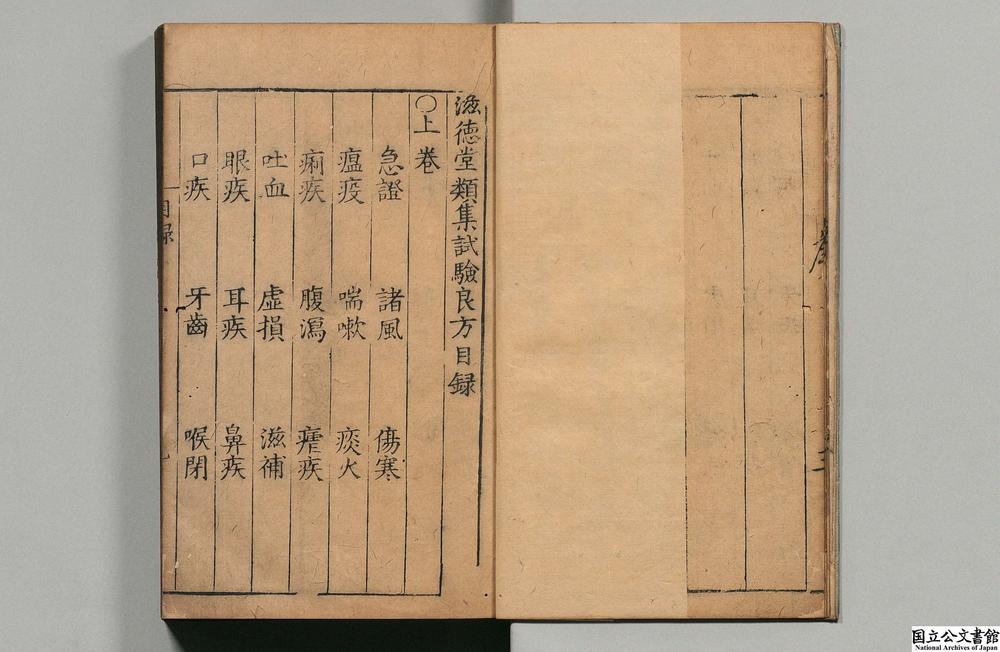 滋德堂類集試驗良方目録
〇上卷
急證 諸風 傷寒
瘟疫 喘嗽 痰火
痢疾 腹瀉 瘧疾
吐血 虛損 滋補
眼疾 耳疾 鼻疾
口疾 牙齒 喉閉
目録
国立公文書館
National Archives of Japan